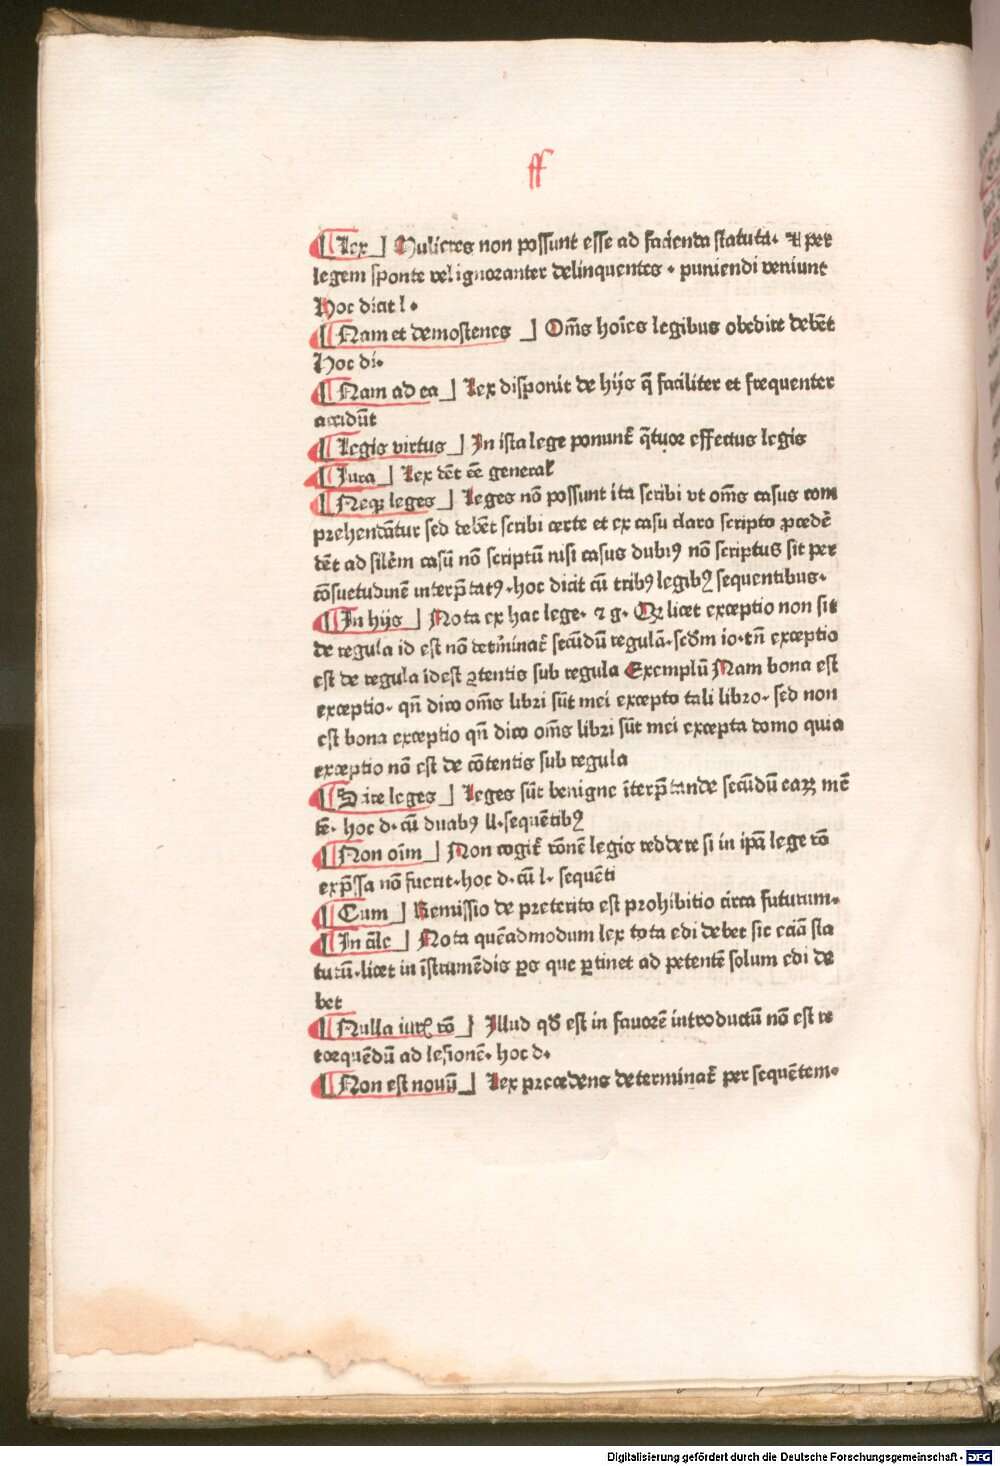 ff
¶ Lex ] Mulieres non possunt esse ad facienda statuta. ⁊ per
legem sponte vel ignoranter delinquentes . puniendi veniunt
Hoc dicit l.
¶ Nam et demostenes ] Om̄s hoīes legibus obedire debēt
Hoc di.
¶ Nam ad ea ] Lex disponit de hijs q̄ faciliter et frequenter
accidūt
¶ Legis virtus ] In ista lege ponunt᷑ q̄tuor effectus legis
¶ Jura ] Lex dēt eē general᷑
¶ Neqꝫ leges ] Leges nō possunt ita scribi vt om̄s casus com
prehendātur sed debēt scribi certe et ex casu claro scripto ꝓcedē
dēt ad silēm casū nō scriptū nisi casus dubiꝰ nō scriptus sit per
cōsuetudinē interp̄tatꝰ. hoc dicit cū tribꝰ legibꝰ sequentibus.
¶ In hijs ] Nota ex hac lege. ⁊ g. Qꝫ licet exceptio non sit
de regula id est nō det̄minat᷑ secūdū regulā. scd̄m io. tn̄ exceptio
est de regula id est ꝯtentis sub regula Exemplū Nam bona est
exceptio. qn̄ dico om̄s libri sūt mei excepto tali libro. sed non
est bona exceptio qn̄ dico om̄s libri sūt mei excepta domo quia
exceptio nō est de cōtentis sub regula
¶ Scire leges ] Leges sūt benigne īterp̄tande secūdū eaꝝ mē
tē. hoc d. cū duabꝰ ll. sequētibꝰ
¶ Non oīm ] Non cogit᷑ rōnē legis reddere si in ip̄a lege rō
exp̄ssa nō fuerit. hoc d. cū l. sequēti
¶ Cum ] Remissio de preterito est prohibitio circa futurum.
¶ In cīle ] Nota quēadmodum lex tota edi debet sic eciā sta
tutū. licet in īstrumēdis ꝑs que ꝑtinet ad petentē solum edi de
bet
¶ Nulla iur᷑ rō ] Illud qđ est in fauorē introductū nō est re
torquēdū ad lesionē. hoc d.
¶ Non est nouū ] Lex precedens determinat᷑ per sequētem.
Digitalisierung gefördert durch die Deutsche Forschungsgemeinschaft - DFG